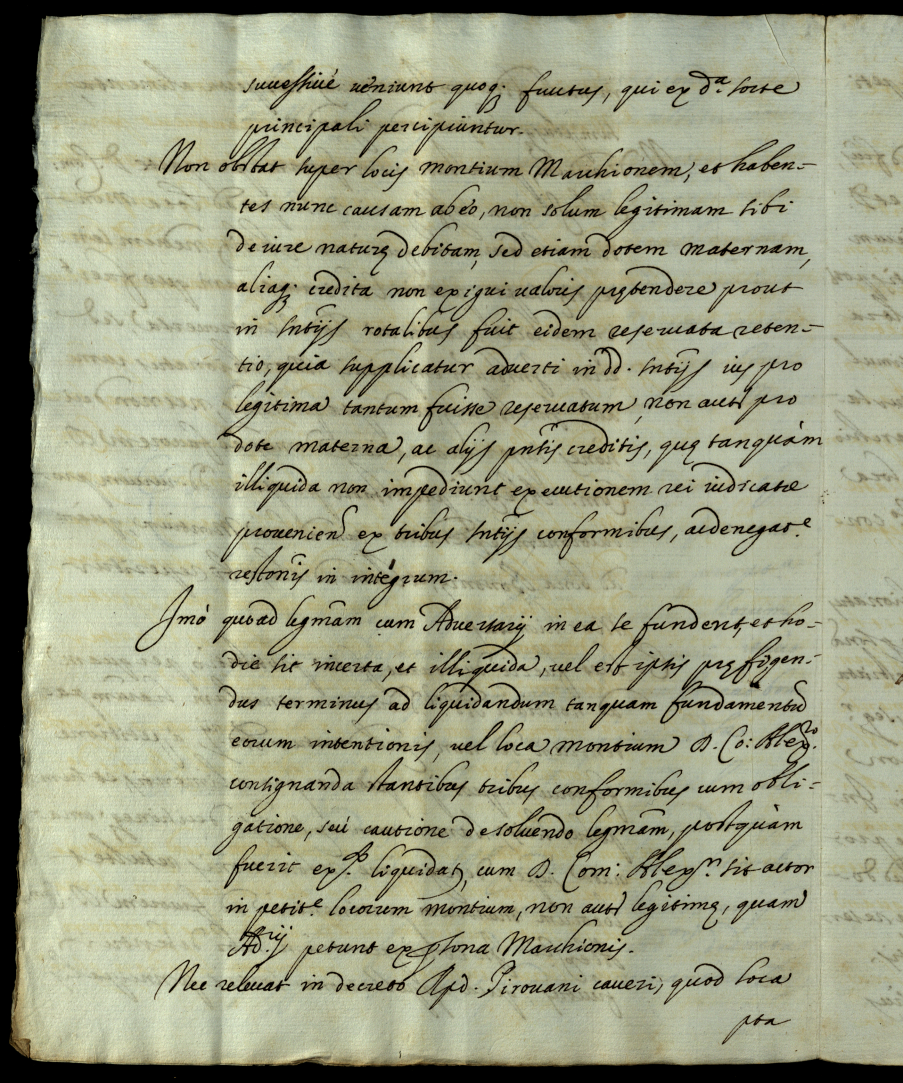 successiuè ueniunt quoq; fructus, qui ex d.ª sorte
principali percipiuntur.
Non obstat super locis montium Marchionem, et haben-
tes nunc causam ab eo, non solum legitimam sibi
de iure naturę debitam, sed etiam dotem maternam,
aliaq; credita non exigui ualoris prętendere prout
in sntijs rotalibus fuit eidem reseruata reten-
tio, quia supplicatur aduerti in dd. sntijs ius pro
legitima tantum fuisse reseruatum, non aut pro
dote materna, ac alijs pntis creditis, quę tanquàm
illiquida non impediunt executionem rei iudicatæ
prouenien ex tribus sntijs conformibus, ac denegat.e
restonis in intégrum.
Imò quoad legmam cum Aduersarij in ea se fundent, et ho-
die sit incerta, et illiquida, uel est ipsis pręfigen-
dus terminus ad liquidandum tanquam fundamentũ
eorum intentionis, uel loca montium D. Co: Alex.ro
consignanda stantibus tribus conformibus cum obli-
gatione, seù cautione de soluendo legmam, postquàm
fuerit liquidat, cum D. Com: Alex.m sit actor
in petit.e locorum montium, non aut legitimę, quam
Ad.rij petunt ex psona Marchionis.
Nec releuat in decreto Apd. Pirouani caueri, quod loca
pta